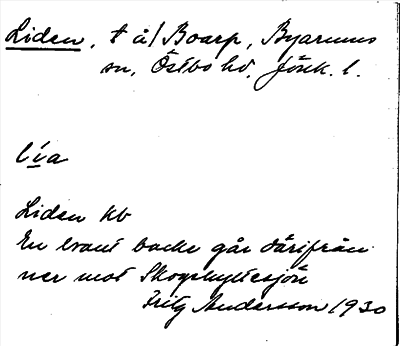 Liden, t å/ Boarp, Byarums
sn, Östbo hd. Jönk. l.
Liden kb
En brant backe går därifrån
ner mot Skogshyltesjön
Fritz Andersson 1930